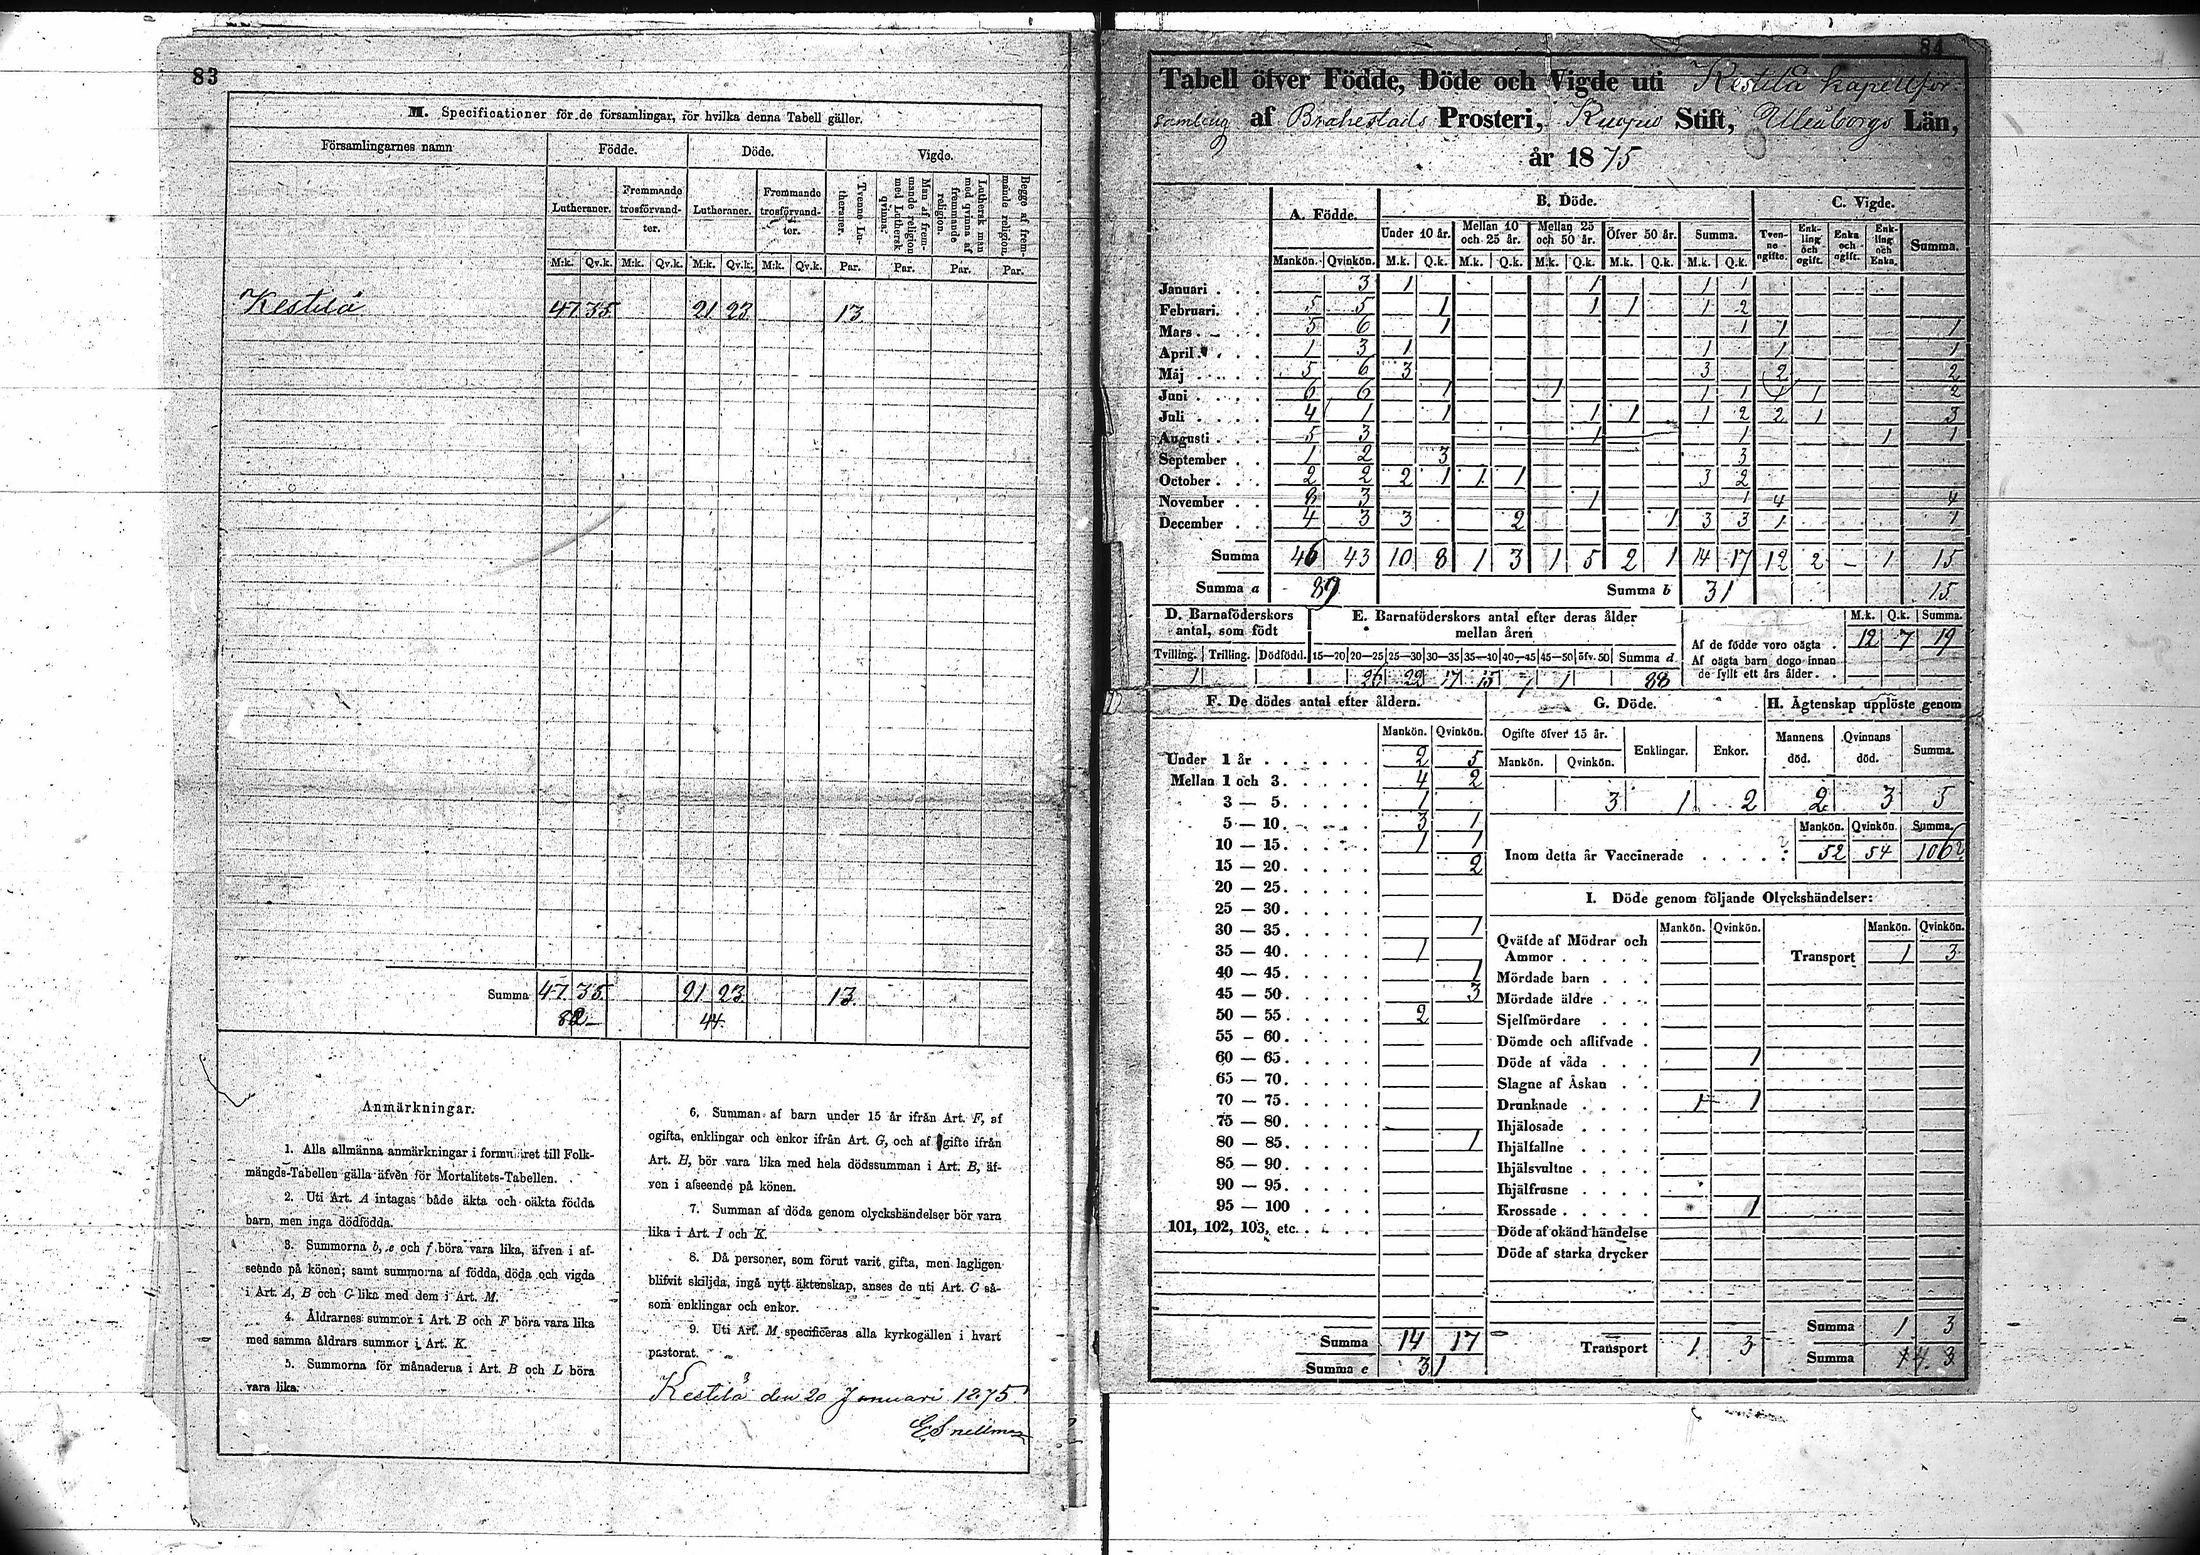 83
M. Specificationer för de församlingar, för hvilka denna Tabell gäller.
Församlingarnes namn Födde. Döde. Vigde.
Lutheraner. Fremmande trosförvandter. Lutheraner. Fremmande trosförvandter. Tvenne Lutheraner. Man af fremmande religion med Luthersk qvinna. Luthersk man med qvinna af fremmande religion. Begge af fremmande religion.
M:k. Qv.k. M:k. Qv.k. M:k. Qv.k. M:k. Qv.k. Par. Par. Par. Par.
Kestilä 47 35 21 23 13
Summa 47 35 21 23 13
82 44
Anmärkningar.
1. Alla allmänna anmärkningar i formuläret till Folk-
mängds-Tabellen gälla äfven för Mortalitets-Tabellen.
2. Uti Art. A intagas både äkta och oäkta födda
barn, men inga dödfödda.
3. Summorna b, e och f böra vara lika, äfven i af-
seende på könen; samt summorna af födda, döda och vigda
i Art. A, B och C lika med dem i Art. M.
4. Åldrarnes summor i Art. B och F böra vara lika
med samma åldrars summor i Art. K.
5. Summorna för månaderna i Art. B och L böra
vara lika.
6. Summan af barn under 15 år ifrån Art. F, af
ogifta, enklingar och enkor ifrån Art. G, och af gifte ifrån
Art. H, bör vara lika med hela dödssumman i Art. B, äf-
ven i afseende på könen.
7. Summan af döda genom olyckshändelser bör vara
lika i Art. I och K.
8. Då personer, som förut varit gifta, men lagligen
blifvit skiljda, ingå nytt äktenskap, anses de uti Art. C så-
som enklingar och enkor.
9. Uti Art. M specificeras alla kyrkogällen i hvart
pastorat.
Kestilä den 20 Januari 1875.
E Snellman
84
Tabell öfver Födde, Döde och Vigde uti Kestilä kapellför-
samling af Brahestads Prosteri, Kuopio Stift, Uleåborgs Län,
år 1875
A. Födde. B. Döde. C. Vigde.
Under 10 år. Mellan 10 och 25 år. Mellan 25 och 50 år. Öfver 50 år. Summa. Tvenne ogifte. Enkling och ogift. Enka och ogift. Enkling och Enka. Summa.
Mankön. Qvinkön. M.k. Q.k. M.k. Q.k. M.k. Q.k. M.k. Q.k. M.k. Q.k.
Januari . . . 3 1 1 1 1
Februari. . . 5 5 1 1 1 1 2
Mars . . . 5 6 1 1 1 1
April . . . 1 3 1 1 1 1
Maj . . . 5 6 3 3 2 2
Juni . . . 6 6 1 1 1 1 1 1 2
Juli . . . 4 1 1 1 1 1 2 2 1 3
Augusti . . . 5 3 1 1 1 1
September . . 1 2 3 3
October . . . 2 2 2 1 1 1 3 2
November . . 8 3 1 1 4 4
December . . 4 3 3 2 1 3 3 1 1
Summa 46 43 10 8 1 3 1 5 2 1 14 17 12 2 – 1 15
Summa a 89 Summa b 31 15
D. Barnaföderskors antal, som födt
Tvilling. Trilling. Dödfödd.
1
E. Barnaföderskors antal efter deras ålder mellan åren
15—20 20—25 25—30 30—35 35—40 40—45 45—50 öfv. 50 Summa d
26 22 17 15 7 1 88
M.k. Q.k. Summa.
Af de födde voro oägta . 12 7 19
Af oägta barn dogo innan
de fyllt ett års ålder. .
F. De dödes antal efter åldern.
Mankön. Qvinkön.
Under 1 år . . . . . . 2 5
Mellan 1 och 3. . . . . 4 2
3 — 5. . . . . 1
5 — 10. . . . . 3 1
10 — 15. . . . . 1 1
15 — 20. . . . . 2
20 — 25. . . . .
25 — 30. . . . .
30 — 35. . . . . 1
35 — 40. . . . . 1
40 — 45. . . . . 1
45 — 50. . . . . 3
50 — 55. . . . . 2
55 — 60. . . . .
60 — 65. . . . .
65 — 70. . . . .
70 — 75. . . . .
75 — 80. . . . .
80 — 85. . . . . 1
85 — 90. . . . .
90 — 95. . . . .
95 — 100 . . . .
101, 102, 103, etc. . .
Summa 14 17
Summa e 31
G. Döde.
Ogifte öfver 15 år. Enklingar. Enkor.
Mankön. Qvinkön.
3 1 2
H. Ägtenskap upplöste genom
Mannens död. Qvinnans död. Summa.
2 3 5
Mankön. Qvinkön. Summa.
Inom detta år Vaccinerade . . . . 52 54 106
I. Döde genom följande Olyckshändelser:
Mankön. Qvinkön. Mankön. Qvinkön.
Qväfde af Mödrar och
Ammor . . . . . Transport 1 3
Mördade barn . . .
Mördade äldre . . .
Sjelfmördare . . .
Dömde och aflifvade .
Döde af våda . . . 1
Slagne af Åskan . .
Drunknade . . . . 1 1
Ihjälosade . . . .
Ihjälfallne . . . .
Ihjälsvultne . . . .
Ihjälfrusne . . . .
Krossade . . . . . 1
Döde af okänd händelse
Döde af starka drycker
Summa 1 3
Transport 1 3
Summa 4